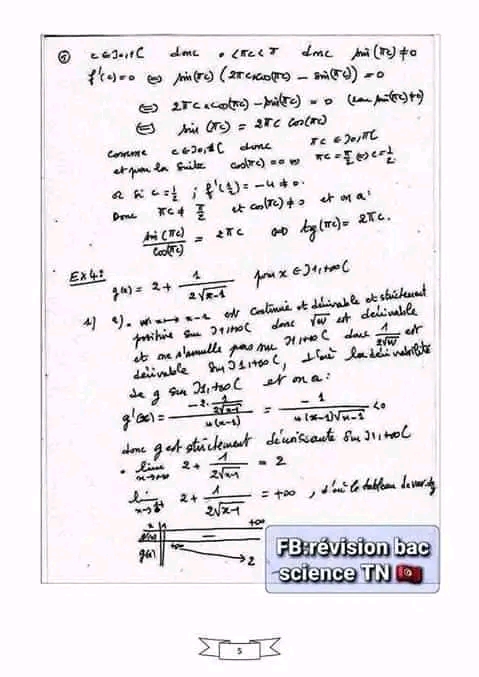 c ∈ ]0,1[ donc 0 < πc < π donc sin(πc) ≠ 0
f'(c) = 0 ⇔ sin(πc) (2πc cos(πc) - sin(πc)) = 0
⇔ 2πc × cos(πc) - sin(πc) = 0 (car sin(πc) ≠ 0)
⇔ sin(πc) = 2πc cos(πc)
comme c ∈ ]0,1[ donc πc ∈ ]0,π[
et par la suite cos(πc) = 0 ⇔ πc = π/2 ⇔ c = 1/2
or si c = 1/2 ; f'(1/2) = -4 ≠ 0.
Donc πc ≠ π/2 et cos(πc) ≠ 0 et on a:
sin(πc)/cos(πc) = 2πc ⇔ tg(πc) = 2πc.
Ex4:
g(x) = 2 + 1/(2√(x-1)) pour x ∈ ]1,+∞[
1) a) x ↦ x-1 est continue et dérivable et strictement
positive sur ]1,+∞[ donc √u est dérivable
et ne s'annulle pas sur ]1,+∞[ donc 1/(2√u) est
dérivable sur ]1,+∞[, d'où la dérivabilité
de g sur ]1,+∞[ et on a:
g'(x) = (-2·1/(2√(x-1)))/(4(x-1)) = -1/(4(x-1)√(x-1)) < 0
donc g est strictement décroissante sur ]1,+∞[
• lim x→+∞ 2 + 1/(2√(x-1)) = 2
lim x→1⁺ 2 + 1/(2√(x-1)) = +∞, d'où le tableau de var de g
x 1 +∞
g'(x) -
g(x) +∞ 2
FB:révision bac
science TN
5